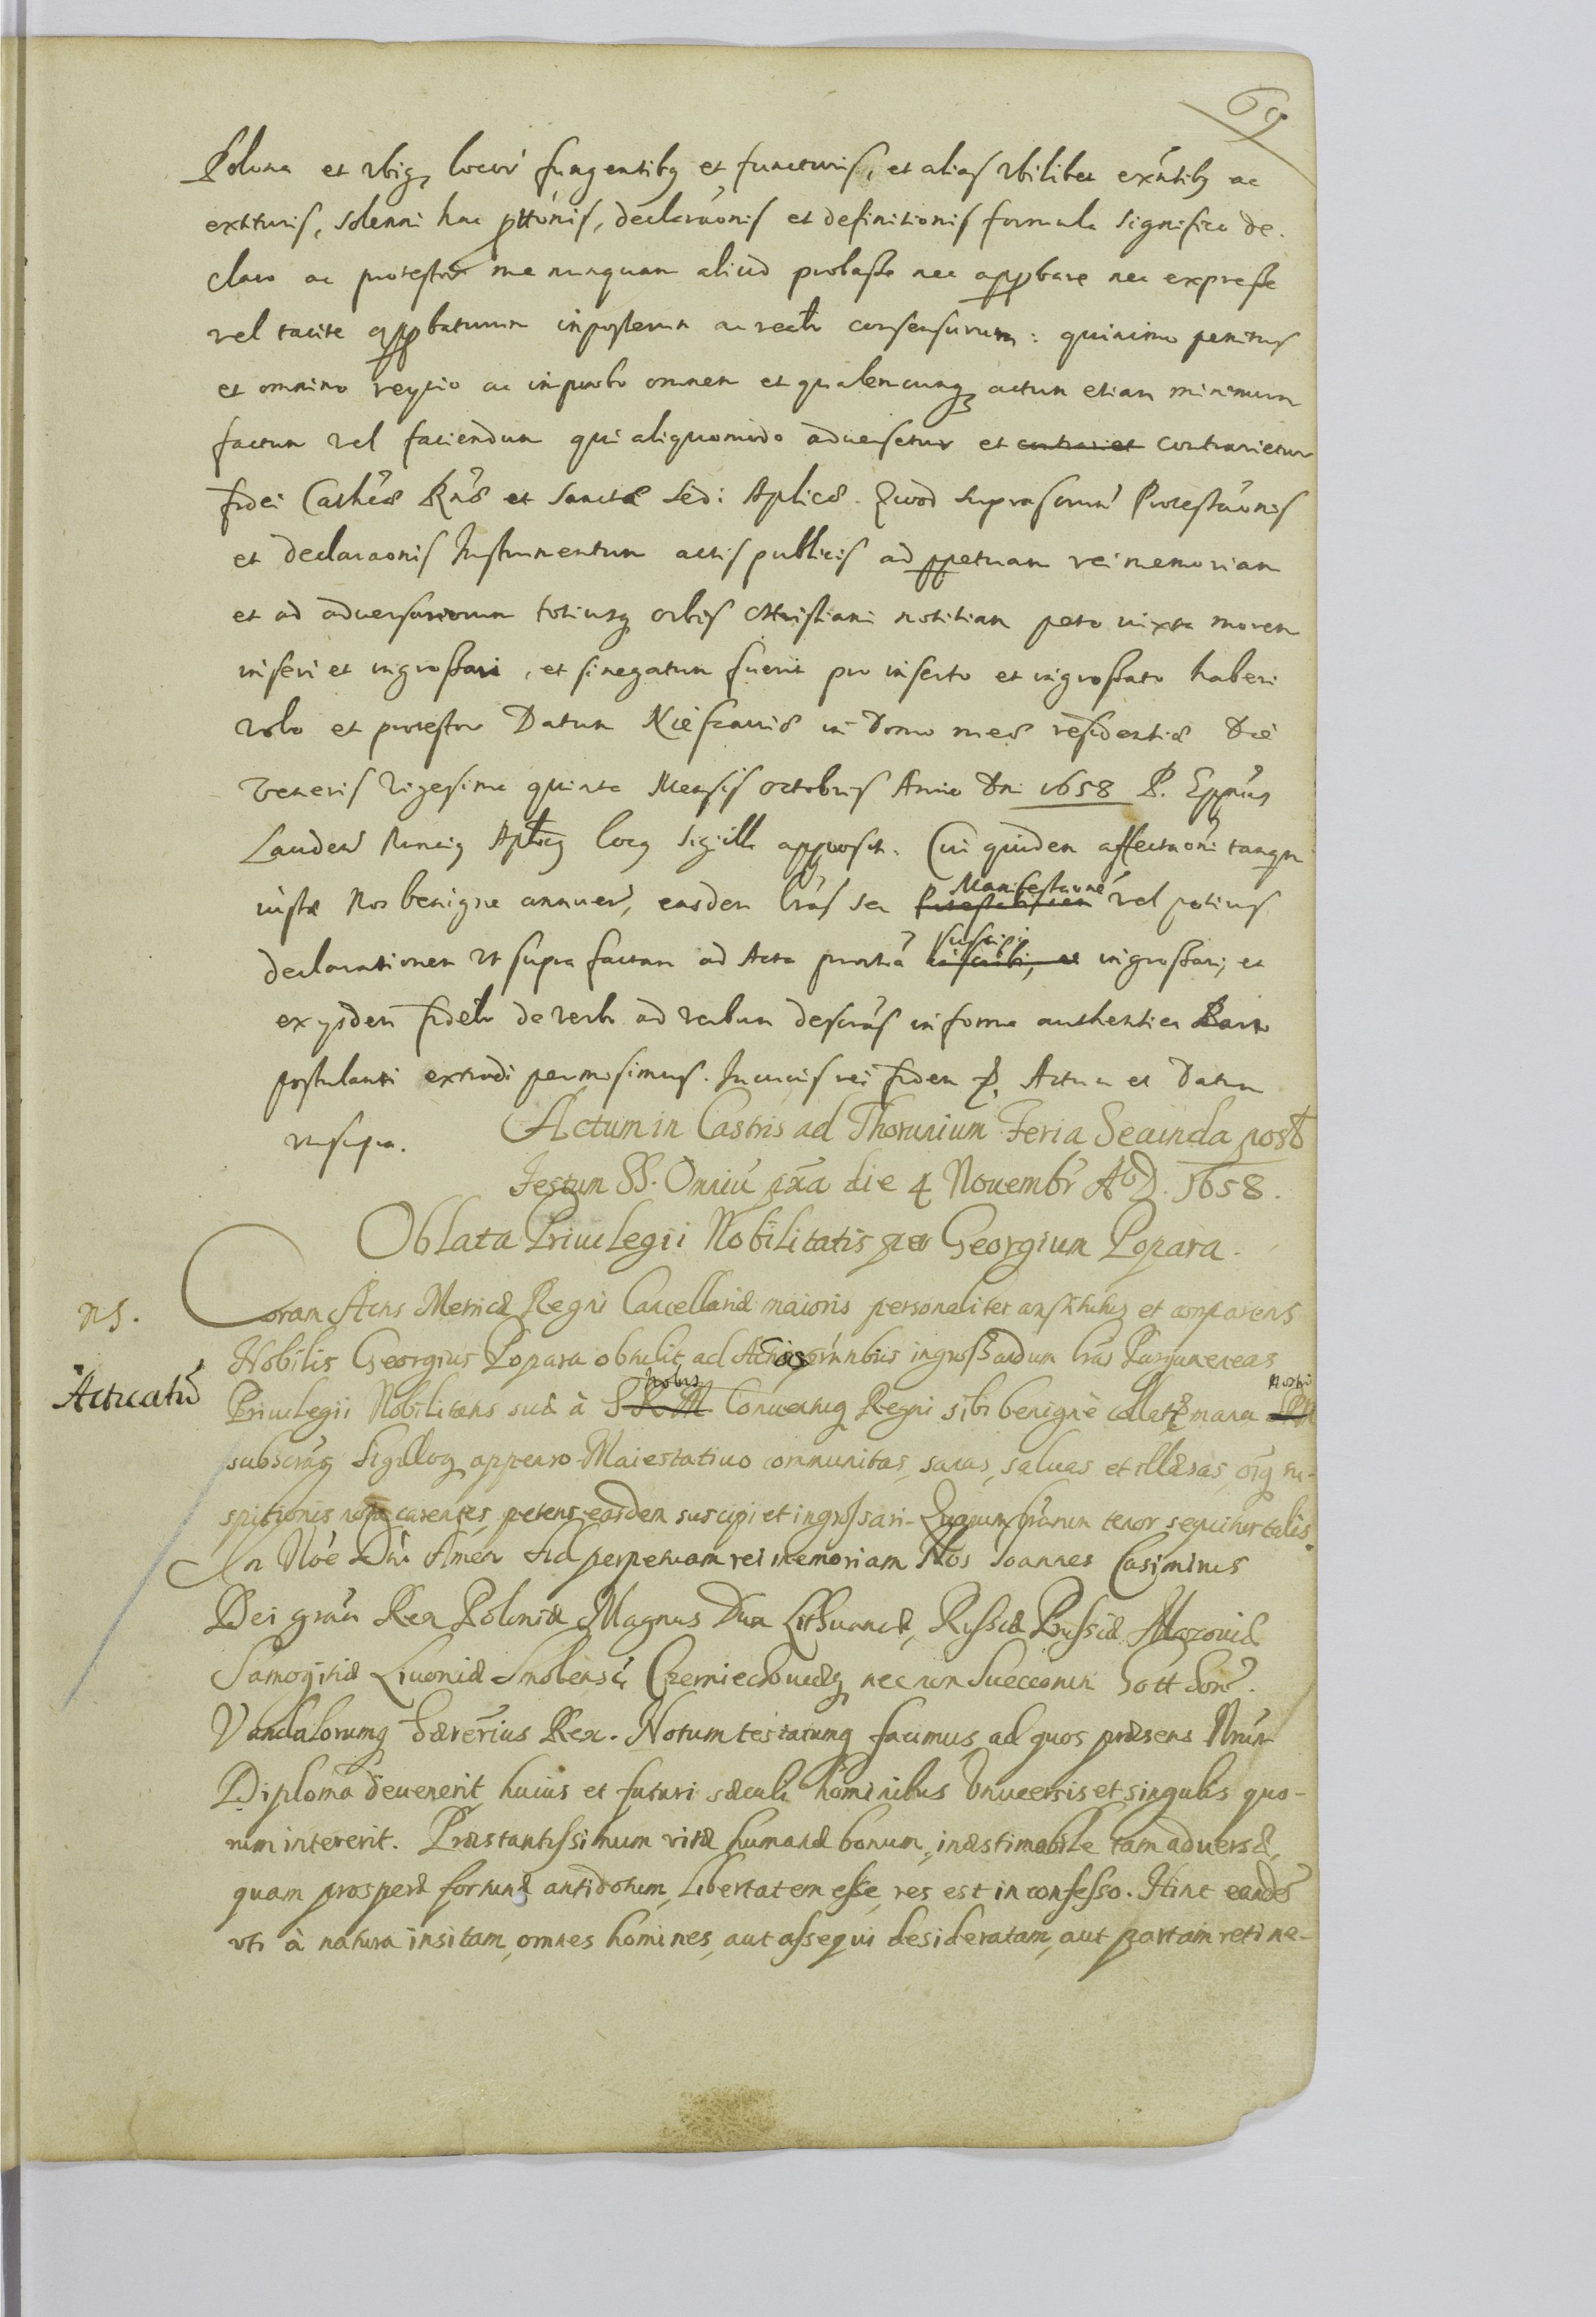 69
Polona et vbiq, locor̃ fungentibq et functuris, et alias vbilibet exñtibq ac
extituris, solenni hac pttõnis, declarãonis et definitionis formula significo de-
claro ac protestor me nunquam aliud probasse nec approbare nec expresse
vel tacite approbaturum inposterum ac recto consensurum: quinimo penitus
et omnino reycio ac improbo omnem et qualemcunq actum etiam minimum
factum vel faciendum qui aliquomodo aduersetur et contrariet contrarietur
fidei Cathẽæ Rnæ et Sanctæ Sedi Aplicæ. Quod suprascriptũ Protestãonis
et declaraonis Instrumentum actis publicis ad ppetuam rei memoriam
et ad aduersariorum totiusq orbis Christiani notitiam peto iuxta morem
inseri et ingrossari, et si negatum fuerit pro inserto et ingrossato haberi
volo et protestor Datum Niescauiæ in Domo meæ residentiæ Die
Veneris Vigesima quinta Mensis Octobris Anno Dni 1658 P. Eppũs
Lauden Nunciq Aplicq locq sigilli appositi. Cui quidem affectaõni tanqm
iustæ Nos benigne annuen, easdem lrãs seu Protestationem Manifestaonẽ vel potius
declarationem vt supra factam ad Acta prntiã inscribi, et suscipi ingrossari, et
ex ysdem fideli de verbo ad verbum descrãs in forma authentica Parti
postulanti extradi permisimus. In cuius rei fidem &. Actum et Datum
vt supra.
Actum in Castris ad Thorunium Feria Secunda post
Festum SS. Omniũ pxã die 4 Nouembr̃ AoD. 1658.
Oblata Priuilegii Nobilitatis per Georgium Popara.
ns.
Coram Actis Metricæ Regni Cancellariæ maioris personaliter constitutq et comparens
Nobilis Georgius Popara obtulit ad Acticandum ingrossandum lrãs Pargameneas
Acticatũ
Priuilegii Nobilitatis suæ à S R M Nobis Conuentuq Regni sibi benignè collatæ manu SRM Nostri
subscrãs Sigilloq appenso Maiestatiuo communitas, sanas, saluas et illæsas, oĩq su-
spitionis nota carentes, petens easdem suscipi et ingrossari. Quarum lrãrum tenor sequitur talis.
In Nõe Dni Amen Ad perpetuam rei memoriam Nos Ioannes Casimirus
Dei grãa Rex Poloniæ Magnus Dux Lithuaniæ, Russiæ Prussiæ Mazouiæ
Samogitiæ Liuoniæ Smolensciæ Czerniechouiæq nec non Suecorum Gotthorũ
Vandalorumq hæreditarius Rex. Notum testatumq facimus ad quos præsens Nrũm
Diploma deuenerit huius et futuri sæculi hominibus Vniuersis et singulis quo-
rum intererit. Præstantissimum vitæ humanæ bonum, inæstimabile tam aduersæ,
quam prosperæ fortunæ antidotum, Libertatem esse, res est in confesso. Hinc eandẽ
vti à natura insitam, omnes homines, aut assequi desideratam, aut partam retine-